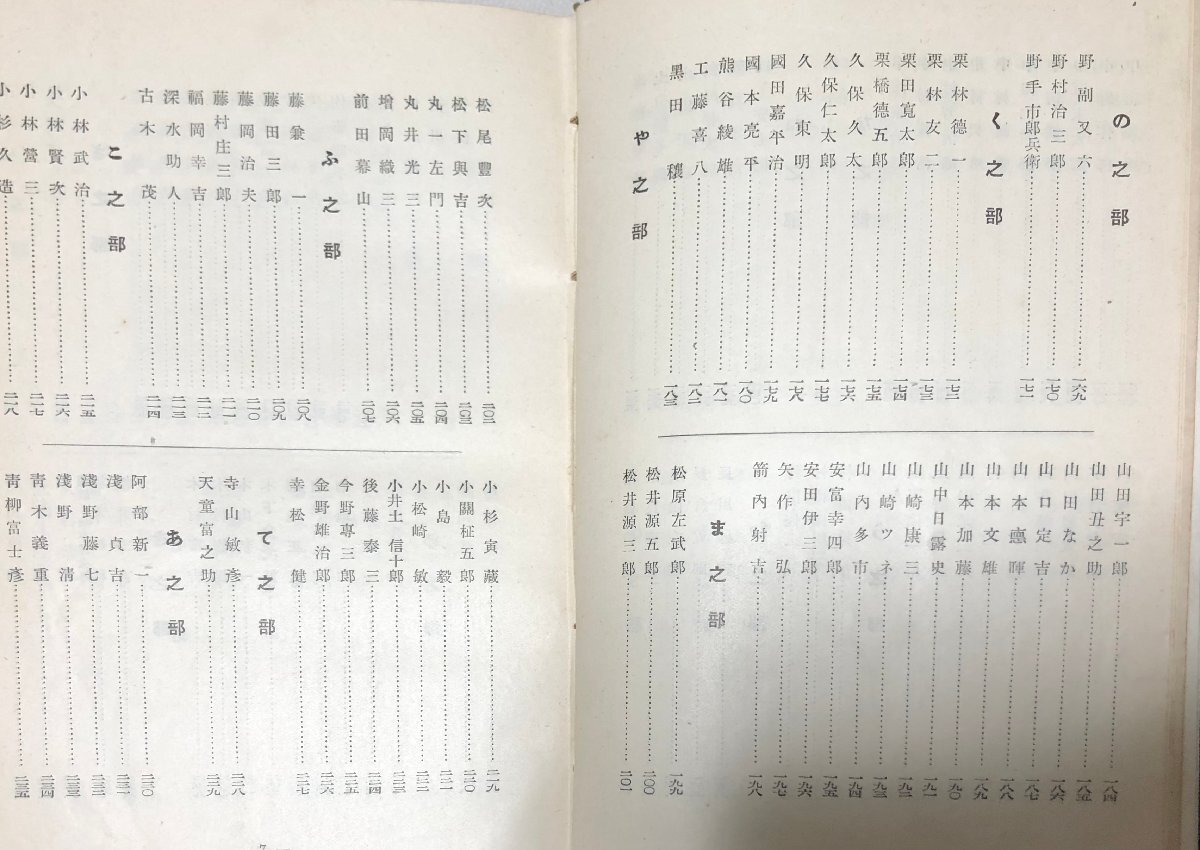 の之部
野副又六…一六九
野村治三郎…一七〇
野手市郎兵衛…一七一
く之部
栗林德一…一七二
栗林友二…一七三
栗田寬太郎…一七四
栗橋德五郎…一七五
久保久太…一七六
久保仁太郎…一七七
久保東明…一七八
國田嘉平治…一七九
國本亮平…一八〇
熊谷綾雄…一八一
工藤喜八…一八二
黑田穰…一八三
や之部
山田宇一郎…一八四
山田丑之助…一八五
山田なか…一八六
山口定吉…一八七
山本惠暉…一八八
山本文雄…一八九
山本加藤…一九〇
山中日露史…一九一
山崎康三…一九二
山崎ツネ…一九三
山內多市…一九四
安富幸四郎…一九五
安田伊三郎…一九六
矢作弘…一九七
箭內射吉…一九八
ま之部
松原左武郎…一九九
松井源五郎…二〇〇
松井源三郎…二〇一
松尾豐次…二〇二
松下與吉…二〇三
丸一左門…二〇四
丸井光三…二〇五
增岡織三…二〇六
前田幕山…二〇七
ふ之部
藤兼一…二〇八
藤田三郎…二〇九
藤岡治夫…二一〇
藤村庄三郎…二一一
福岡幸吉…二一二
深水助人…二一三
古木茂…二一四
こ之部
小林武治…二一五
小林賢次…二一六
小林營三…二一七
小杉久造…二一八
小杉寅藏…二一九
小關柾五郎…二二〇
小島毅…二二一
小松崎敏…二二二
小井土信十郎…二二三
後藤泰三…二二四
今野專三郎…二二五
金野雄治郎…二二六
幸松健…二二七
て之部
寺山敏彥…二二八
天童富之助…二二九
あ之部
阿部新一…二三〇
淺貞吉…二三一
淺野藤七…二三二
淺野淸…二三三
靑木義重…二三四
靑柳富士彥…二三五
7